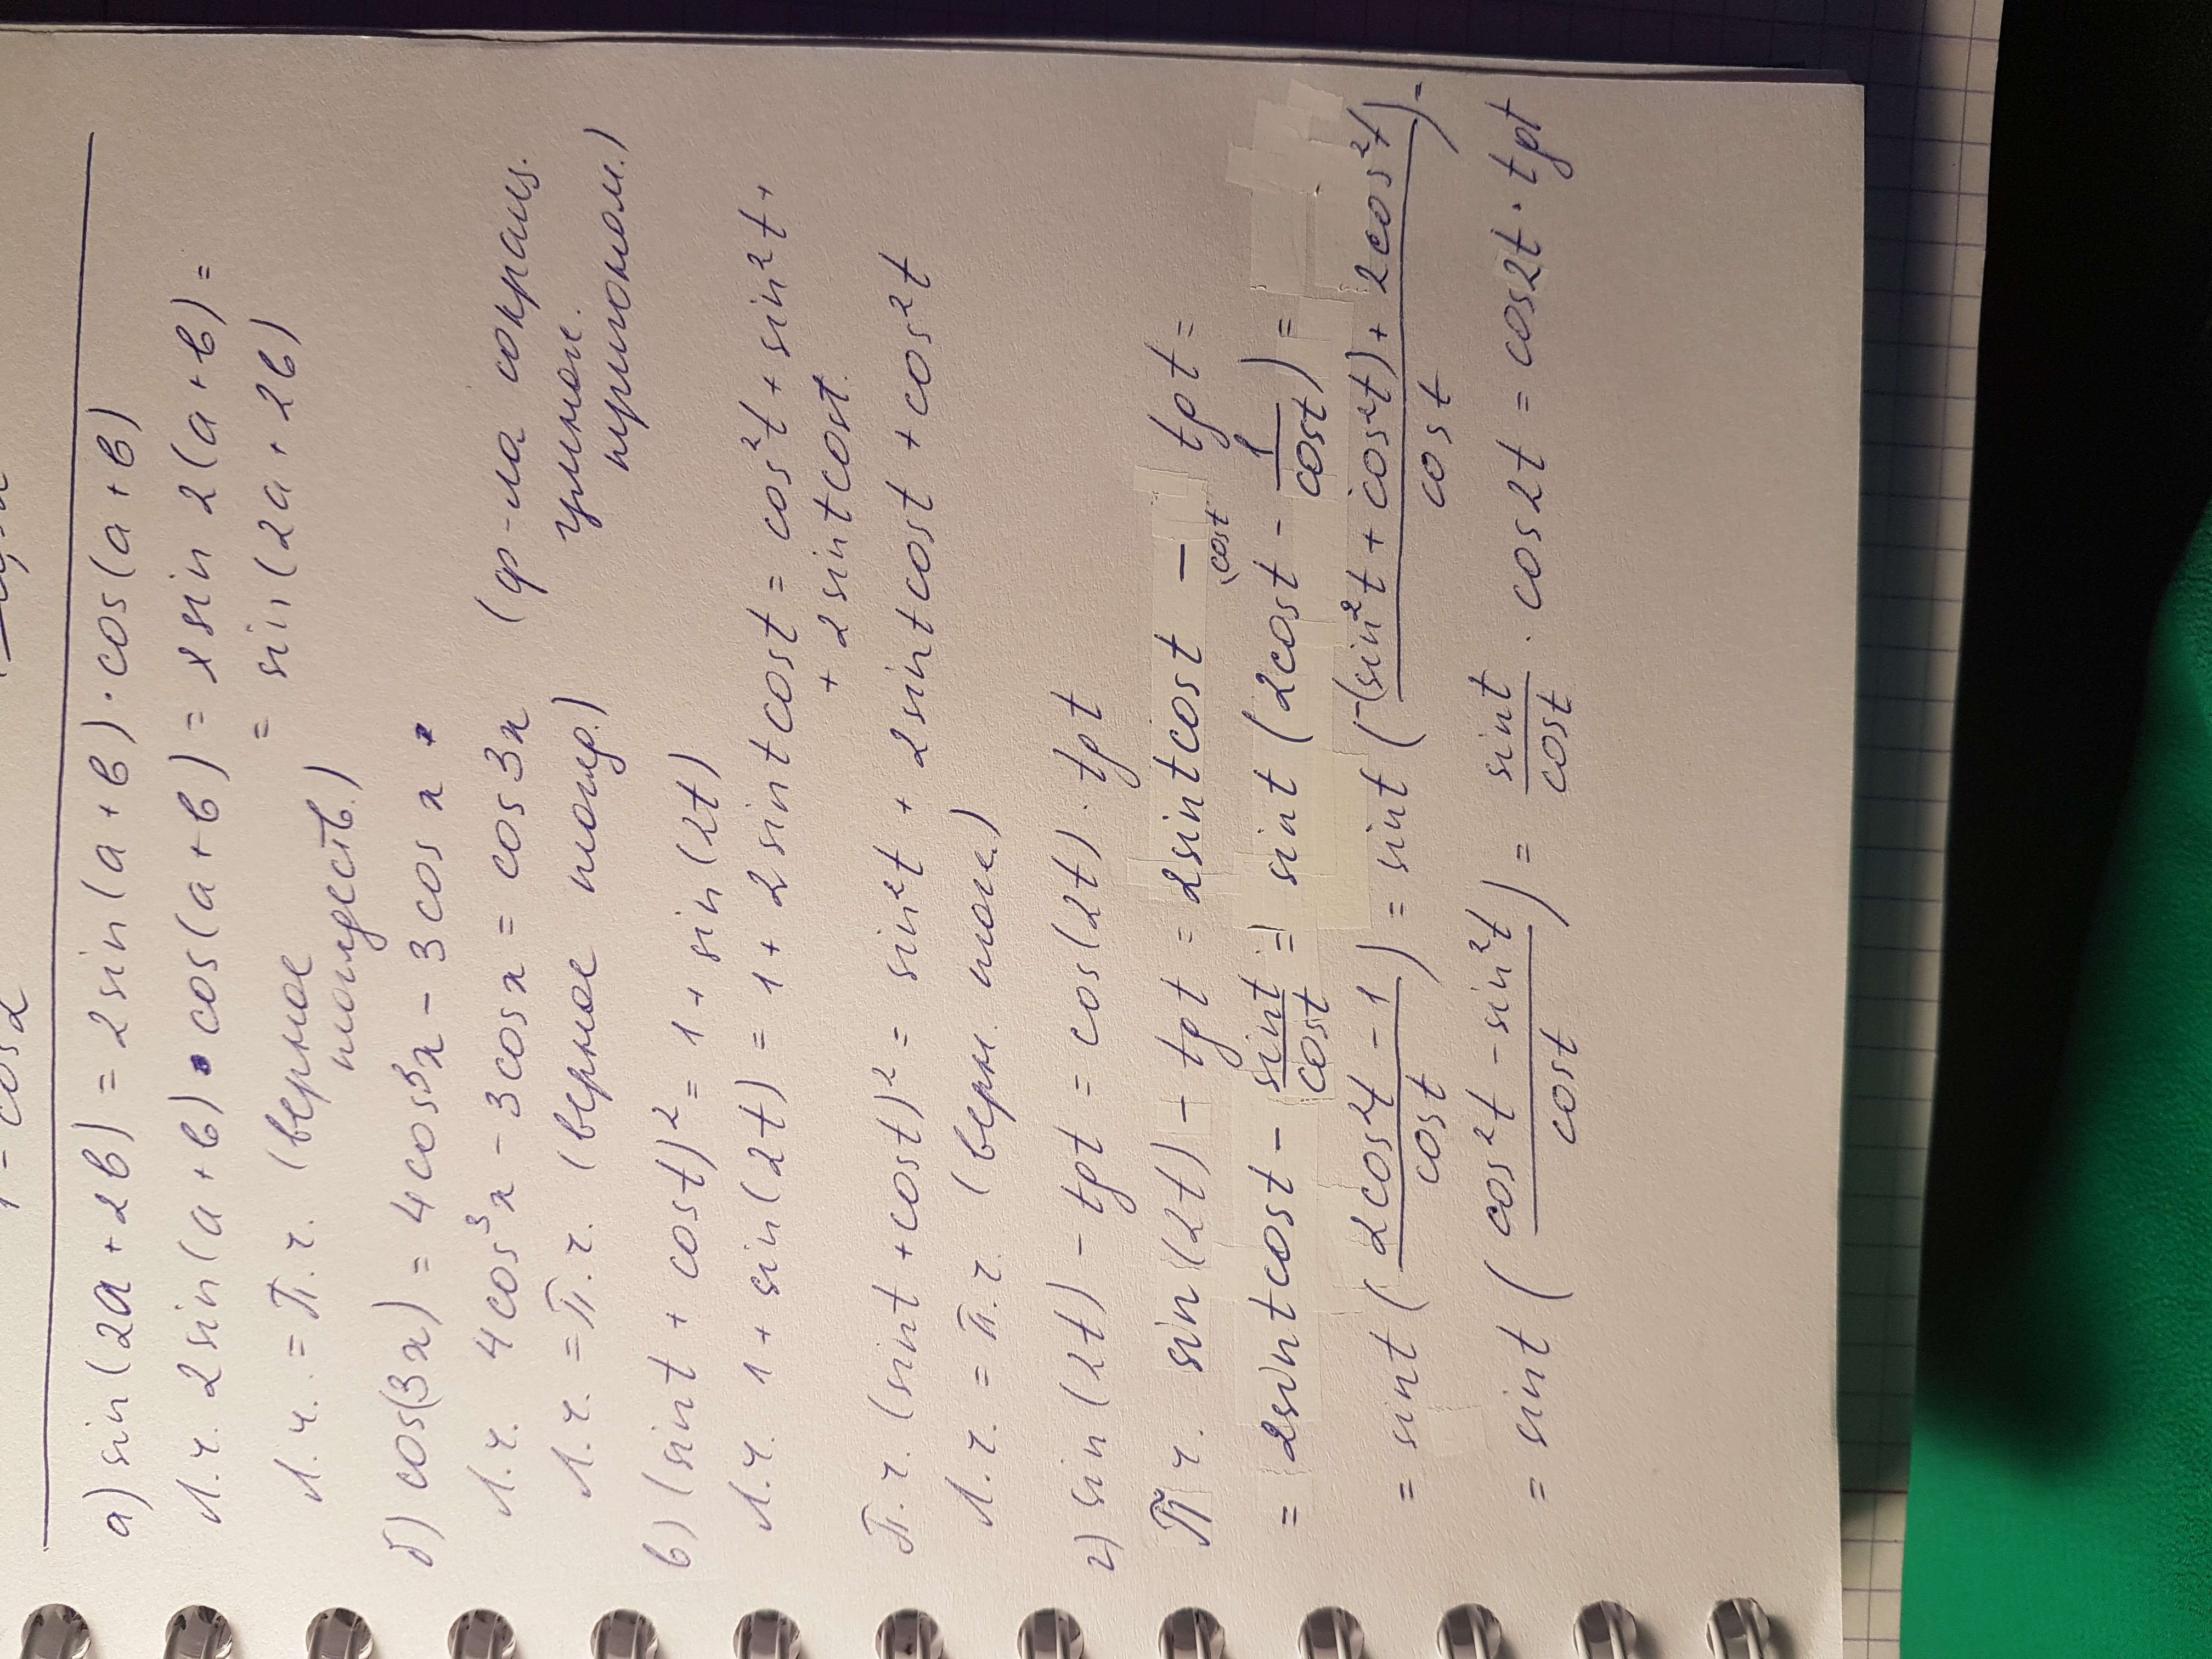 1 - cos 2
а) sin(2a + 2b) = 2 sin(a + b) · cos(a + b)
Л.ч. 2 sin(a + b) · cos(a + b) = sin 2(a + b) =
= sin(2a + 2b)
Л.ч. = П.ч. (верное
тождеств.)
б) cos(3x) = 4cos³x - 3 cos x
Л.ч. 4cos³x - 3cos x = cos 3x (ф-ла сокращ.
Л.ч. = П.ч. (верное тожд.) умнож.
тригоном.)
в) (sint + cost)² = 1 + sin(2t)
Л.ч. 1 + sin(2t) = 1 + 2 sint cost = cos²t + sin²t +
+ 2 sint cost
П.ч. (sint + cost)² = sin²t + 2 sint cost + cos²t
Л.ч. = П.ч. (верн. тож.)
г) sin(2t) - tgt = cos(2t) · tgt
П ч. sin(2t) - tgt = 2sintcost - tgt =
= 2sintcost - sint/cost = sint (2cost - 1/cost) =
= sint (2cos²t - 1 / cost) = sint (-(sin²t + cos²t) + 2cos²t / cost) =
= sint (cos²t - sin²t / cost) = sint/cost · cos2t = cos2t · tgt